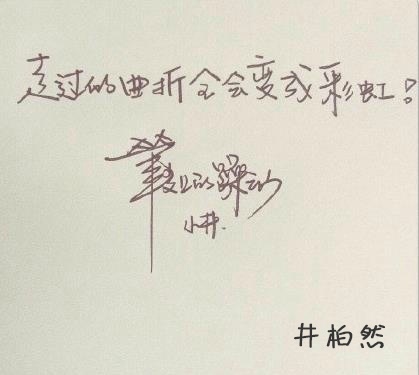 走过的曲折全会变成彩虹!
的躁动
小井.
井柏然